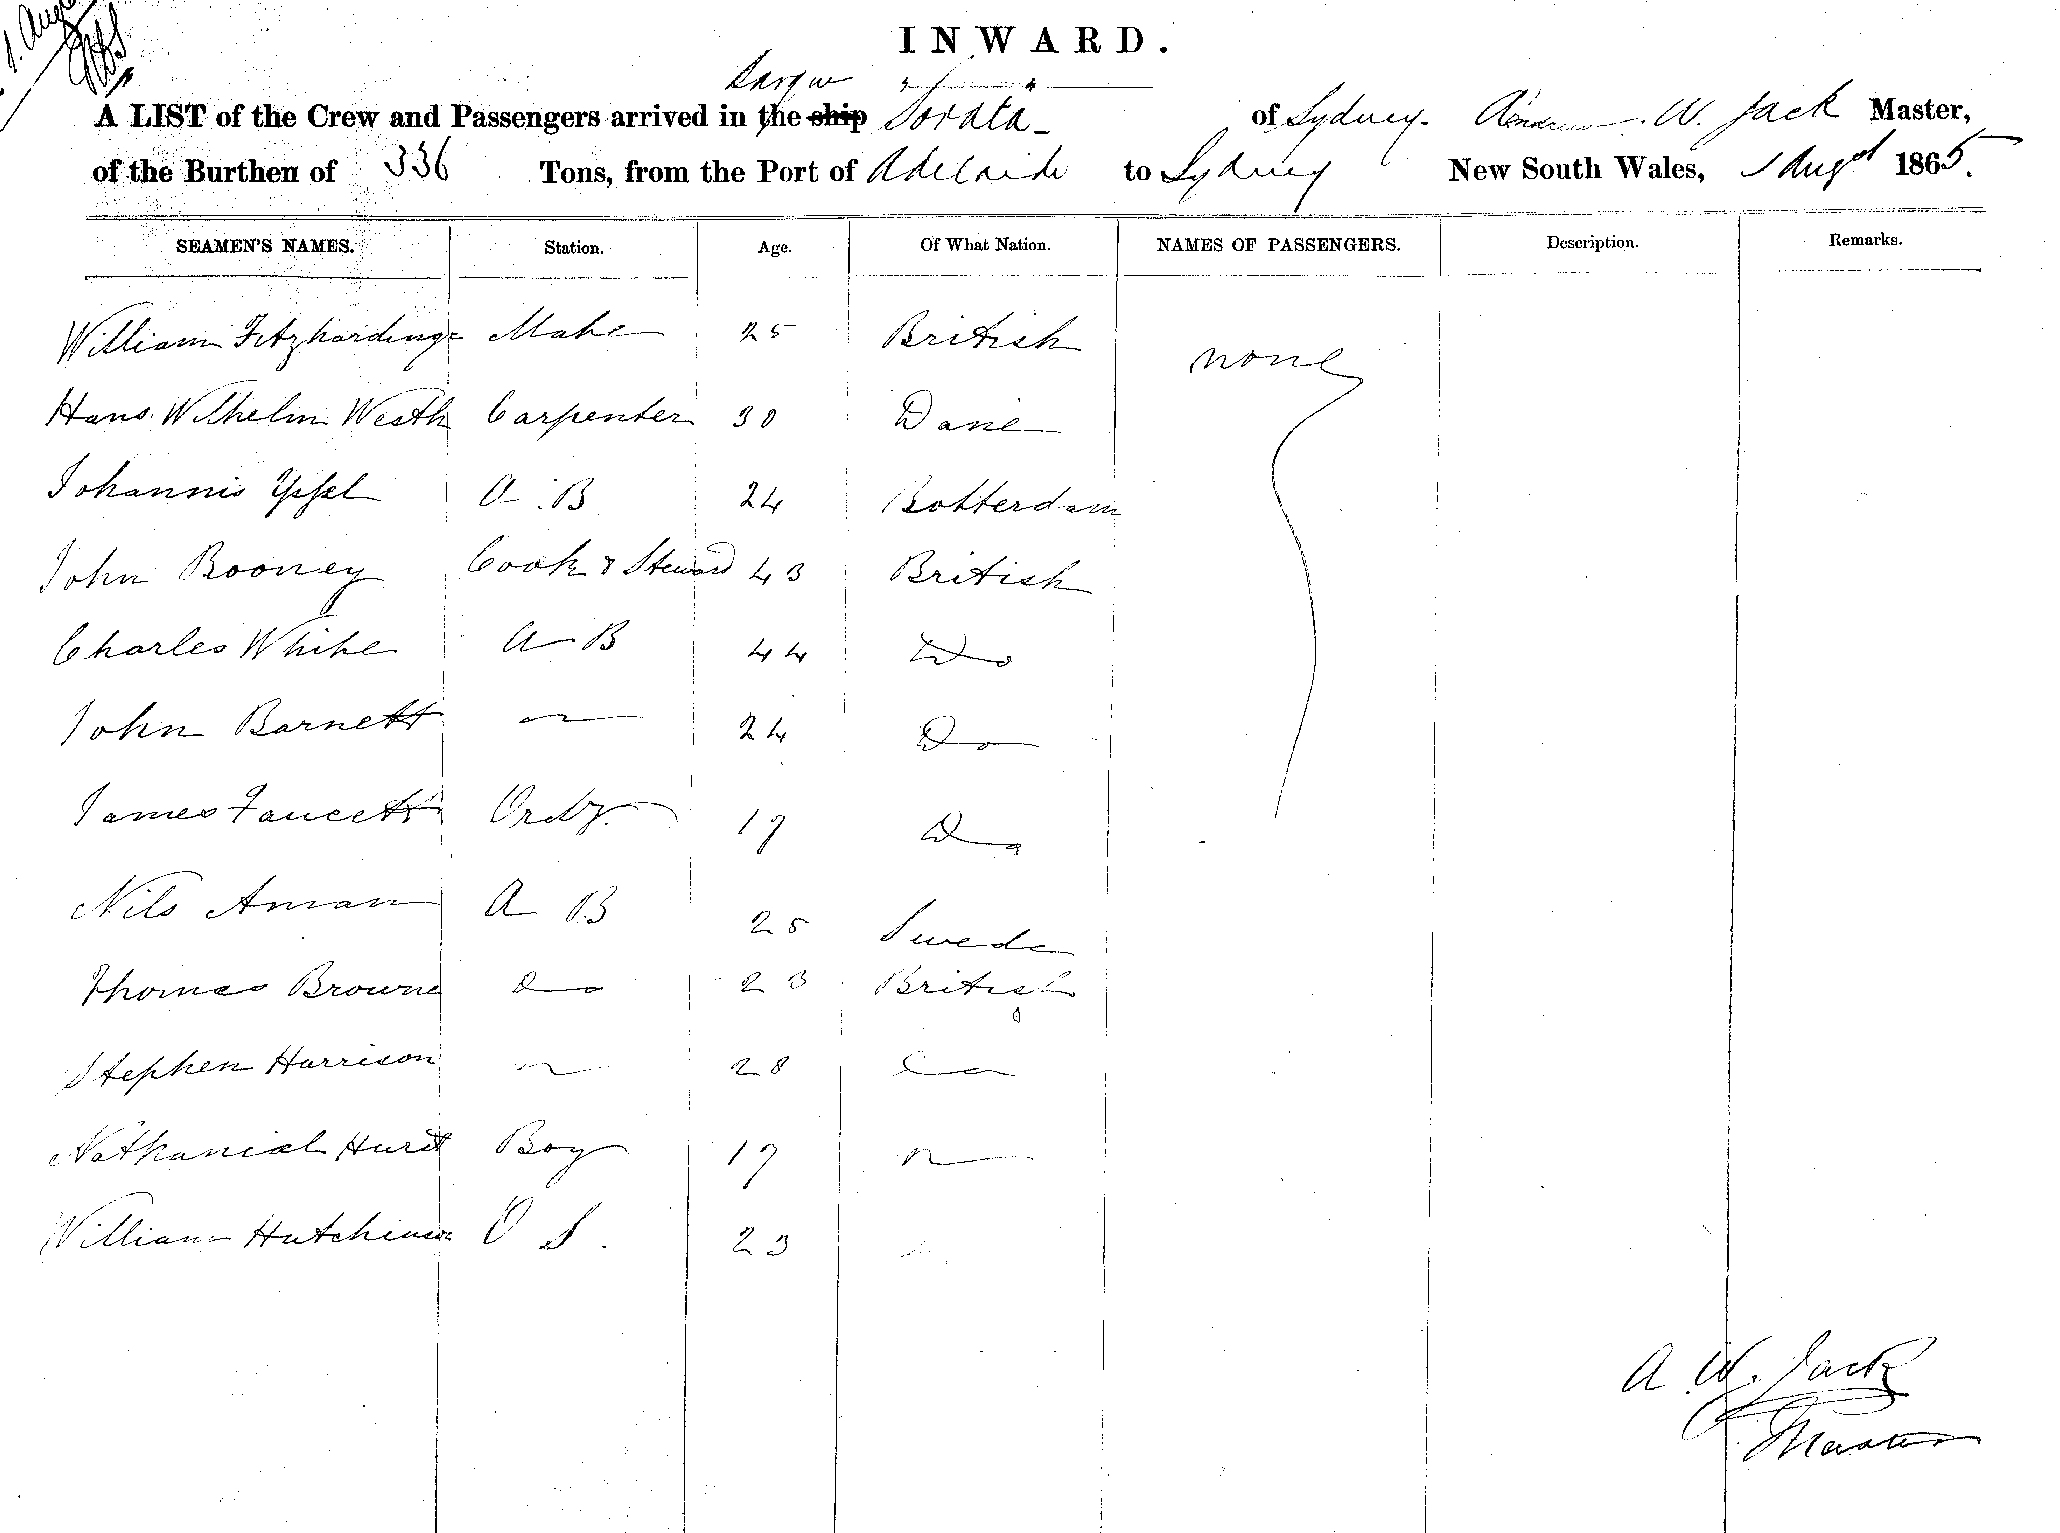 1 Aug
INWARD.
Barque " Sorata "
A LIST of the Crew and Passengers arrived in the ship Sorata of Sydney. W. Jack Master,
of the Burthen of 336 Tons, from the Port of Adelaide to Sydney New South Wales, 1 Augst 1865.
SEAMEN'S NAMES. Station. Age. Of What Nation. NAMES OF PASSENGERS. Description. Remarks.
William Fitzhardinge Mate 25 British none
Hans Wilhelm Westh Carpenter 30 Dane
Johannis Ypsel A.B 24 Rotterdam
John Rooney Cook & Steward 43 British
Charles White A B 44 Do
John Barnett " 24 Do
James Faucett Ordy. 17 Do
Nils Aman A B 25 Swede
Thomas Browne Do 23 British
Stephen Harrison " 28 "
Nathanial Hurst Boy 17 "
William Hutchinson O S. 23 "
A W. Jack
Master